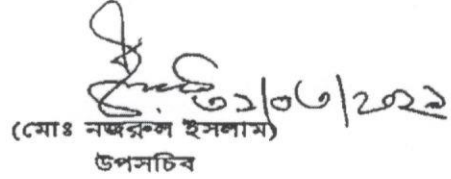 ৩১/০৩/২০২১
(মোঃ নজরুল ইসলাম)
উপসচিব